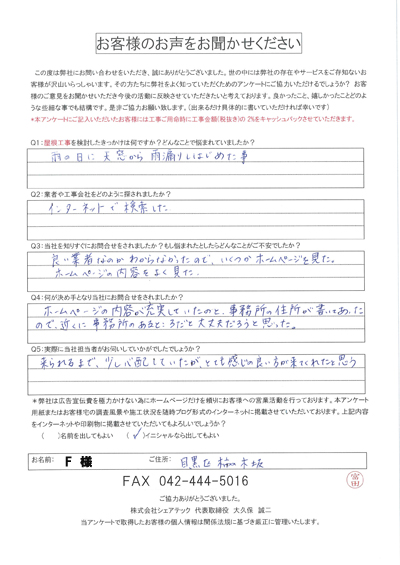 お客様のお声をお聞かせください
この度は弊社にお問い合わせをいただき、誠にありがとうございました。世の中には弊社の存在やサービスをご存知ないお
客様が沢山いらっしゃいます。その方たちに弊社をよく知っていただくためのアンケートにご協力いただけるでしょうか？お客
様のご意見をお聞かせいただき今後の活動に反映させていただきたいと考えております。良かったこと、嬉しかったことどのよ
うな些細な事でも結構です。是非ご協力お願い致します。（出来るだけ具体的に書いていただければ幸いです）
*本アンケートにご記入いただいたお客様には工事ご用命時に工事金額(税抜き)の2%をキャッシュバックさせていただきます。
Q1:屋根工事を検討したきっかけは何ですか？どんなことで悩まれていましたか？
雨の日に天窓から雨漏りしはじめた事
Q2:業者や工事会社をどのように探されましたか？
インターネットで検索した
Q3:当社を知りすぐにお問合せをされましたか？もし悩まれたとしたらどんなことがご不安でしたか？
良い業者なのかわからなかったので、いくつかホームページを見た。
ホームページの内容をよく見た。
Q4:何が決め手となり当社にお問合せをされましたか？
ホームページの内容が充実していたのと、事務所の住所が書いてあった
ので、近くに事務所のあるところだと大丈夫だろうと思った。
Q5:実際に当社担当者がお伺いしていかがでしたでしょうか？
来られるまで、少し心配していたが、とても感じの良い方が来てくれたと思う
*弊社は広告宣伝費を極力かけない為にホームページだけを頼りにお客様への営業活動を行っております。本アンケート
用紙またはお客様宅の調査風景や施工状況を随時ブログ形式のインターネットに掲載させていただいております。上記内容
をインターネットや印刷物に掲載させていただいてもよろしいでしょうか？
（　）名前を出してもよい　（✓）イニシャルなら出してもよい
お名前: F 様　ご住所: 目黒区
FAX 042-444-5016
富田
ご協力ありがとうございました。
株式会社シェアテック 代表取締役 大久保 誠二
当アンケートで取得したお客様の個人情報は関係法規に基づき厳正に管理いたします。